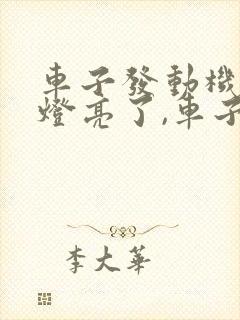 車子發動機
燈亮了,車子
李大華